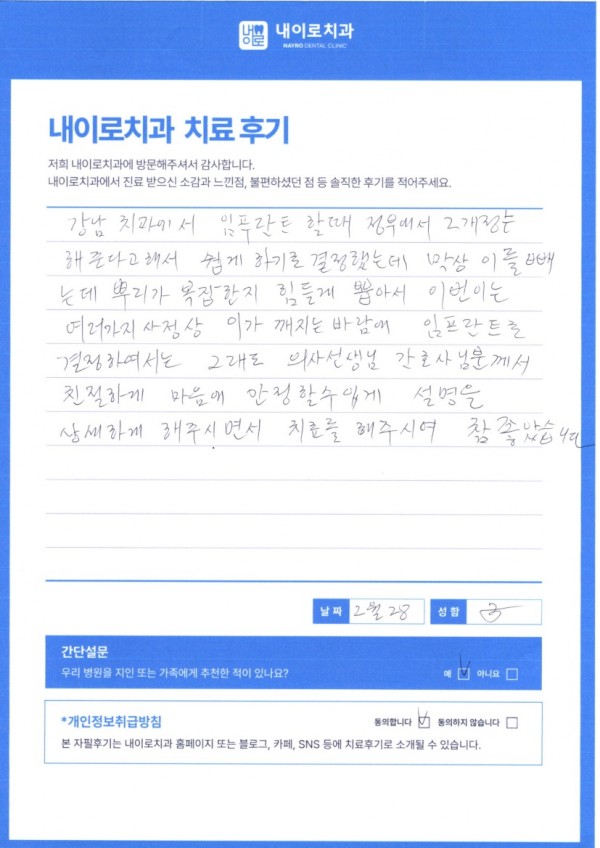 내이로치과
HAYRO DENTAL CLINIC
내이로치과 치료 후기
저희 내이로치과에 방문해주셔서 감사합니다.
내이로치과에서 진료 받으신 소감과 느낀점, 불편하셨던 점 등 솔직한 후기를 적어주세요.
강남 치과에서 임푸란트 할때 정우에서 2개정도
해준다고해서 쉽게 하기로결정했는데 막상 이를 빼
는데 뿌리가 복잡한지 힘들게 뽑아서 이번이는
여러가지사정상 이가 깨지는바람에 임프란트를
결정하여서는 그래도 의사선생님 간호사님분께서
친절하게 마음에 안정할수있게 설명을
상세하게 해주시면서 치료를 해주시여 참 좋았습니다
날 짜 2월 28 성 함
간단설문
우리 병원을 지인 또는 가족에게 추천한 적이 있나요? 예 아니요
*개인정보취급방침 동의합니다 동의하지 않습니다
본 자필후기는 내이로치과 홈페이지 또는 블로그, 카페, SNS 등에 치료후기로 소개될 수 있습니다.